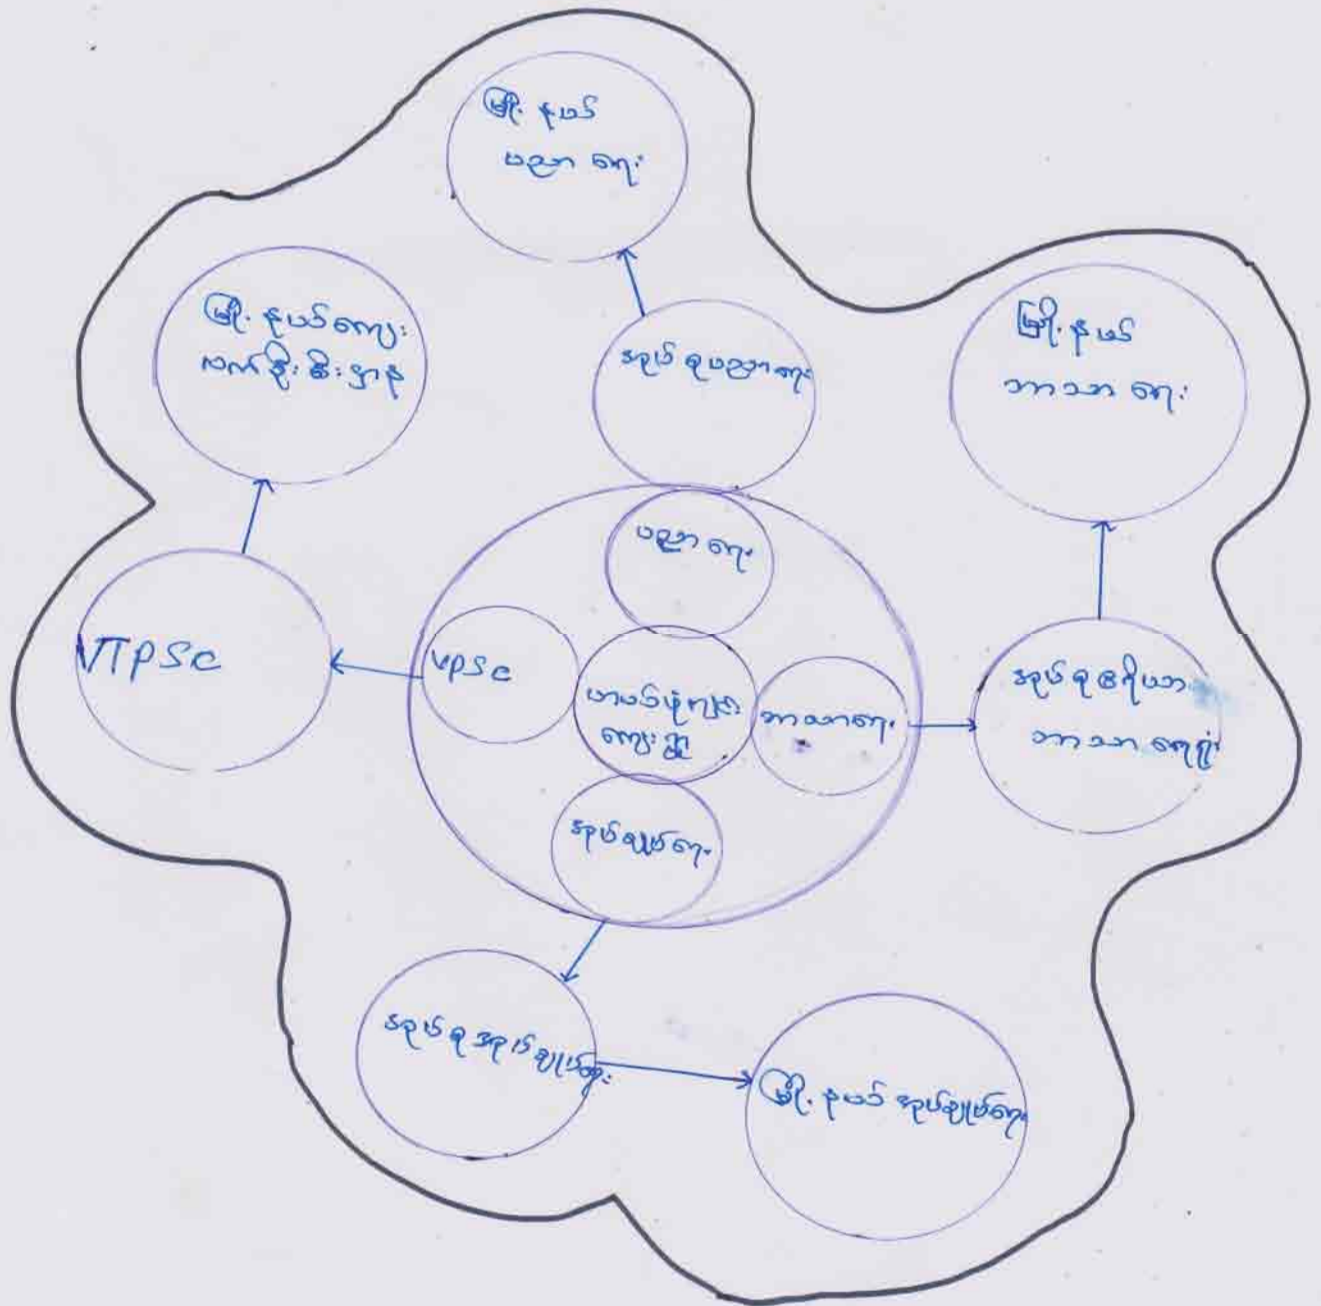 မြို့နယ်
ပညာရေး
မြို့နယ်ကျေး
လက်ဦးစီးဌာန
အုပ်စုပညာရေး
မြို့နယ်
ဘာသာရေး
ပညာရေး
VTPSC
VPSC
ကျေးရွာ
ဘာသာရေး
အုပ်စုဧရိယာ
ဘာသာရေးရုံး
အုပ်ချုပ်ရေး
အုပ်စုအုပ်ချုပ်ရေး
မြို့နယ် အုပ်ချုပ်ရေး